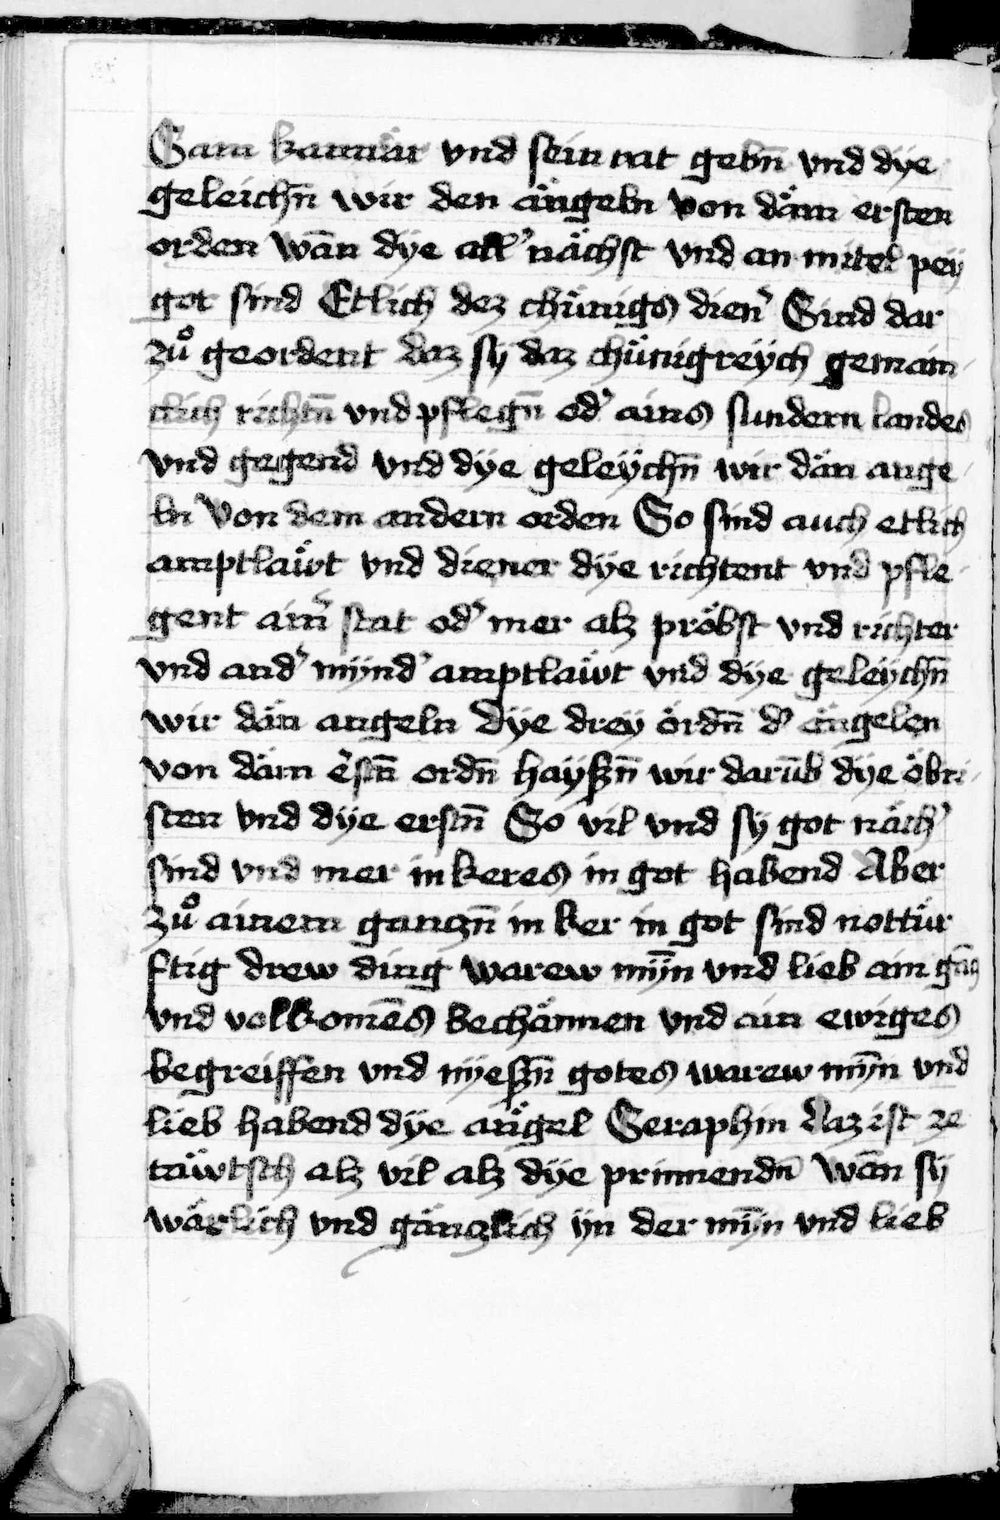 Sam kamrär vnd sein rat gebn̄ vnd dÿe
geleichn̄ wir den ängeln von däm ersten
orden wan̄ dÿe all' nächst vnd an mitel peÿ
got sind Etlich dez chünigs dien' Sind dar
zuͦ geordent daz sÿ daz chünigreÿch gemain
clich richtn̄ vnd pflegn̄ od' ains sundern landes
vnd gegend vnd dÿe geleÿchn̄ wir dän ange
ln von dem andern orden So sind auch etlich
amptläwt vnd diener dÿe richtent vnd pfle
gent ain' stat od' mer alz pröbst vnd richter
vnd and' mÿnd' amptläwt vnd dÿe geleÿchn̄
wir dän angeln Dÿe dreÿ ördn̄ d' ängelen
von däm e'stn̄ ordn̄ haÿszn̄ wir darūb dÿe öbri
sten vnd dÿe erstn̄ So vil vnd sÿ got näch'
sind vnd mer in keres in got habend Aber
zuͦ ainem ganczn̄ in ker in got sind nottür
ftig drew ding warew mÿn̄ vnd lieb ain gācz
vnd volkomēs bechännen vnd ain ewiges
begreiffen vnd nÿeszn̄ gotes warew mÿn̄ vnd
lieb habend dÿe ängel Seraphin daz ist ze
täwtsch alz vil alz dÿe prinnendn̄ wān sÿ
wärlich vnd gänczlich ÿn der mÿn̄ vnd lieb